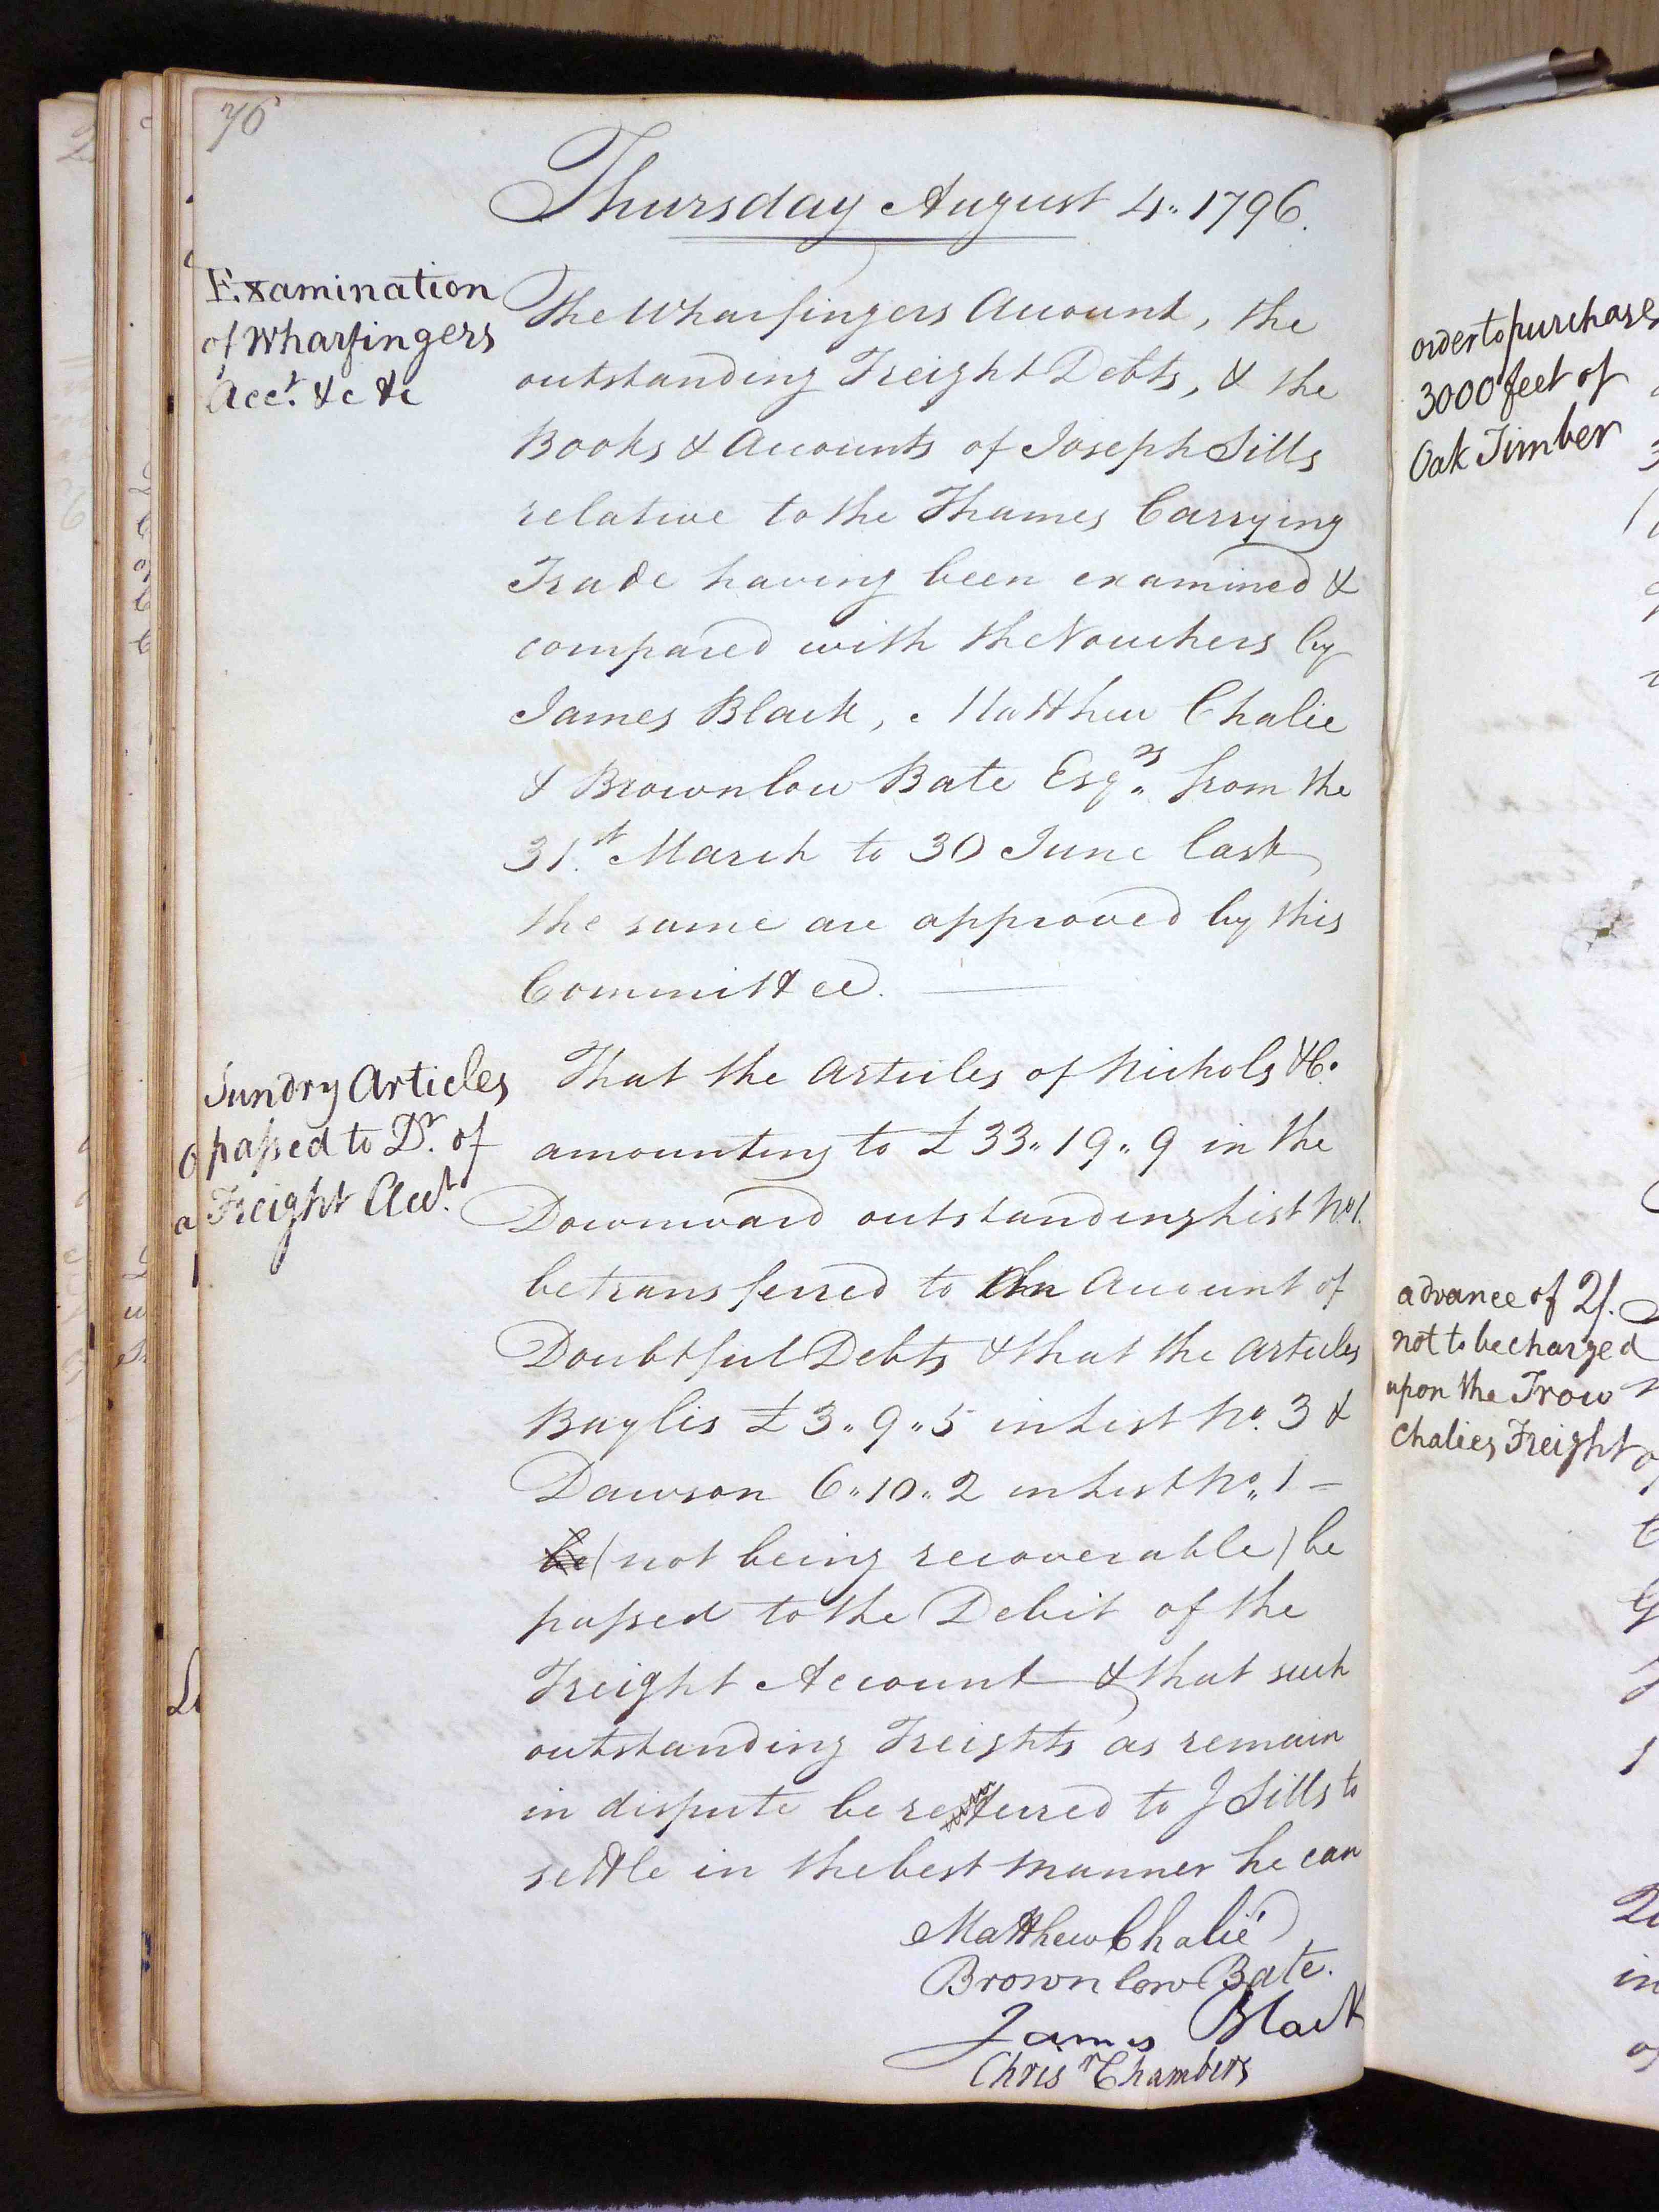 76
Thursday August 4. 1796.
Examination
of Wharfingers
Acct. &c &c
The Wharfingers Account, the
outstanding Freight Debts, & the
Books & Accounts of Joseph Sills
relative to the Thames Carrying
Trade having been examined &
compared with the Vouchers by
James Black, Matthew Chalie
& Brownlow Bate Esqrs from the
31st March to 30 June last
the same are approved by this
Committee.
Sundry Articles
passed to Dr. of
Freight Acct.
That the Articles of Nichols & Co.
amounting to £33"19"9 in the
Downward outstanding List No 1.
be transferred to An Account of
Doubtful Debts & that the Articles
Baylis £3"9"5 in List No. 3 &
Dawson 6"10"2 in List No. 1 -
be (not being recoverable) be
passed to the Debit of the
Freight Account & that such
outstanding Freights as remain
in dispute be referred to J Sills to
settle in the best manner he can
Matthew Chalié
Brownlow Bate.
James Black
Chrisr Chambers
order to purchase
3000 feet of
Oak Timber
advance of 2/.
not to be charged
upon the Trow
Chalies Freight